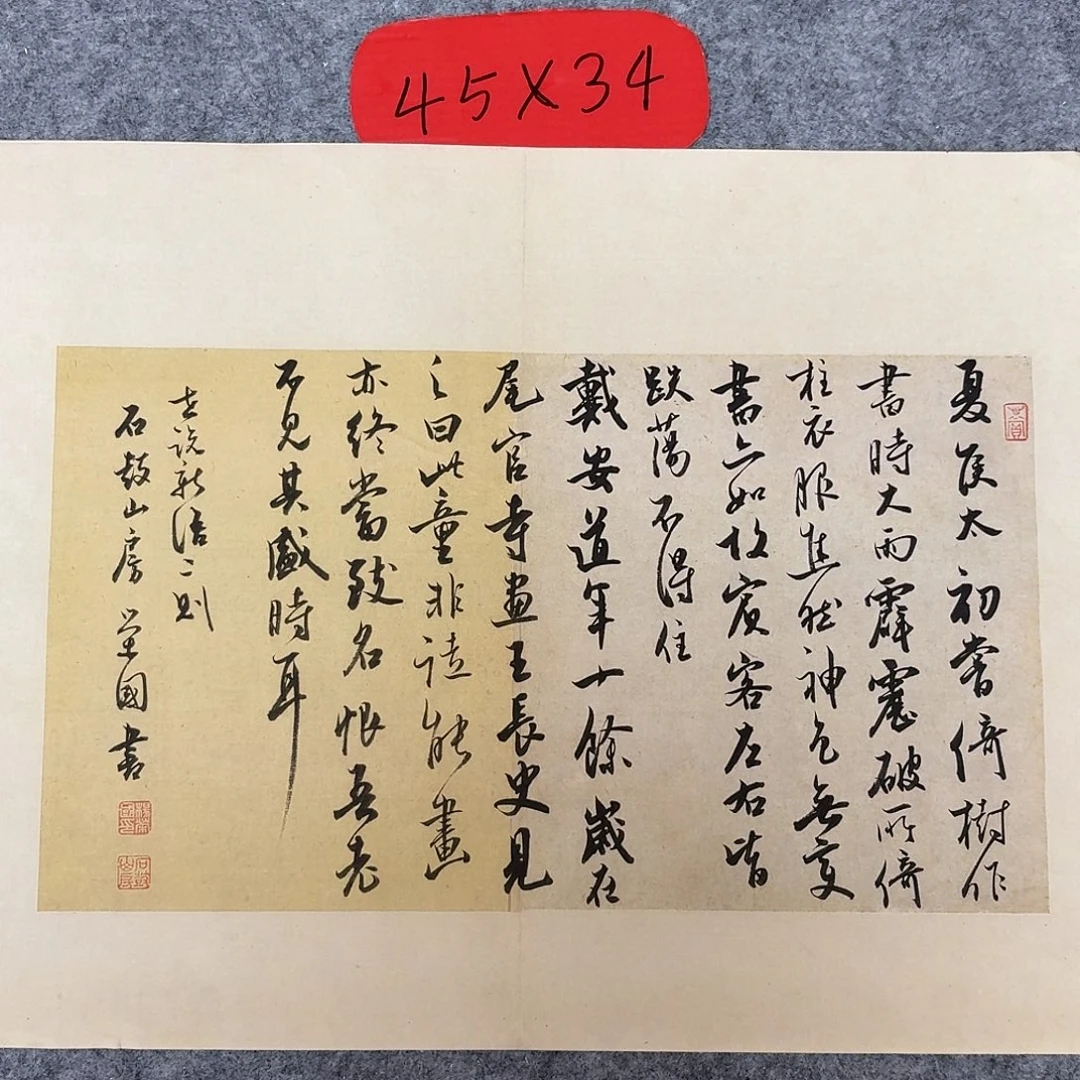 45×34
夏侯太初嘗倚樹作
書時大雨霹震破所倚
柱衣服焦然神色無變
書亦如故賓客左右皆
跌蕩不得住
戴安道年十餘歲在
尾官寺畫王長史見
之曰此童非徒能畫
亦終當致名恨吾老
不見其盛時耳
世說新語二則
石鼓山房榮國書
楊榮國印
石鼓山房